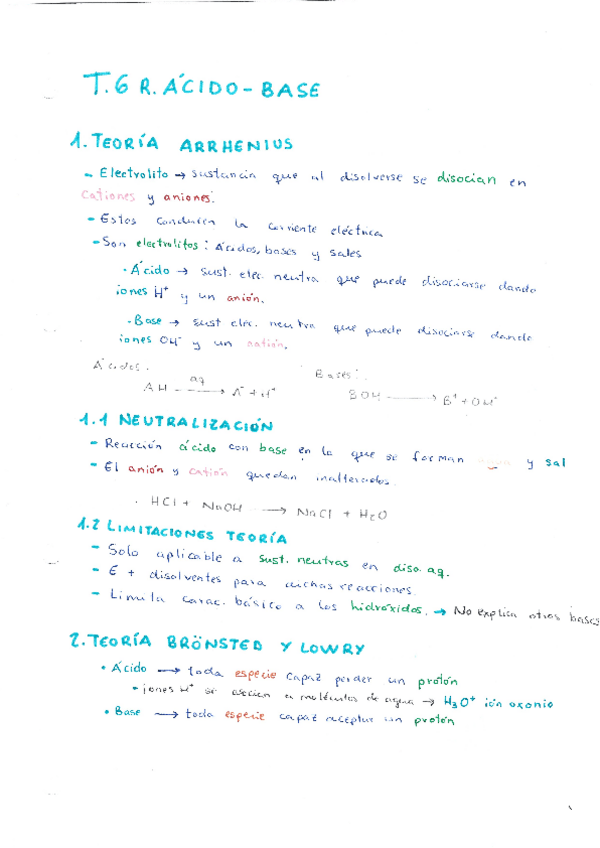 T.6 R. ÁCIDO-BASE
1. TEORÍA ARRHENIUS
- Electrolito → sustancia que al disolverse se disocian en
cationes y aniones.
- Estos conducen la corriente eléctrica
- Son electrolitos: Ácidos, bases y sales
· Ácido → sust. elec. neutra que puede disociarse dando
iones H⁺ y un anión.
· Base → sust elec. neutra que puede disociarse dando
iones OH⁻ y un catión.
Ácidos: Bases:
AH aq → A⁻ + H⁺ BOH → B⁺ + OH⁻
1.1 NEUTRALIZACIÓN
- Reacción ácido con base en la que se forman y sal
- El anión y catión quedan inalterados.
· HCl + NaOH → NaCl + H₂O
1.2 LIMITACIONES TEORÍA
- Solo aplicable a sust. neutras en diso. aq.
- E + disolventes para muchas reacciones.
- Limita carac. básico a los hidróxidos. → No explica otras bases
2. TEORÍA BRÖNSTED Y LOWRY
· Ácido → toda especie capaz perder un protón
· iones H⁺ se asocian a moléculas de agua → H₃O⁺ ión oxonio
· Base → toda especie capaz aceptar un protón